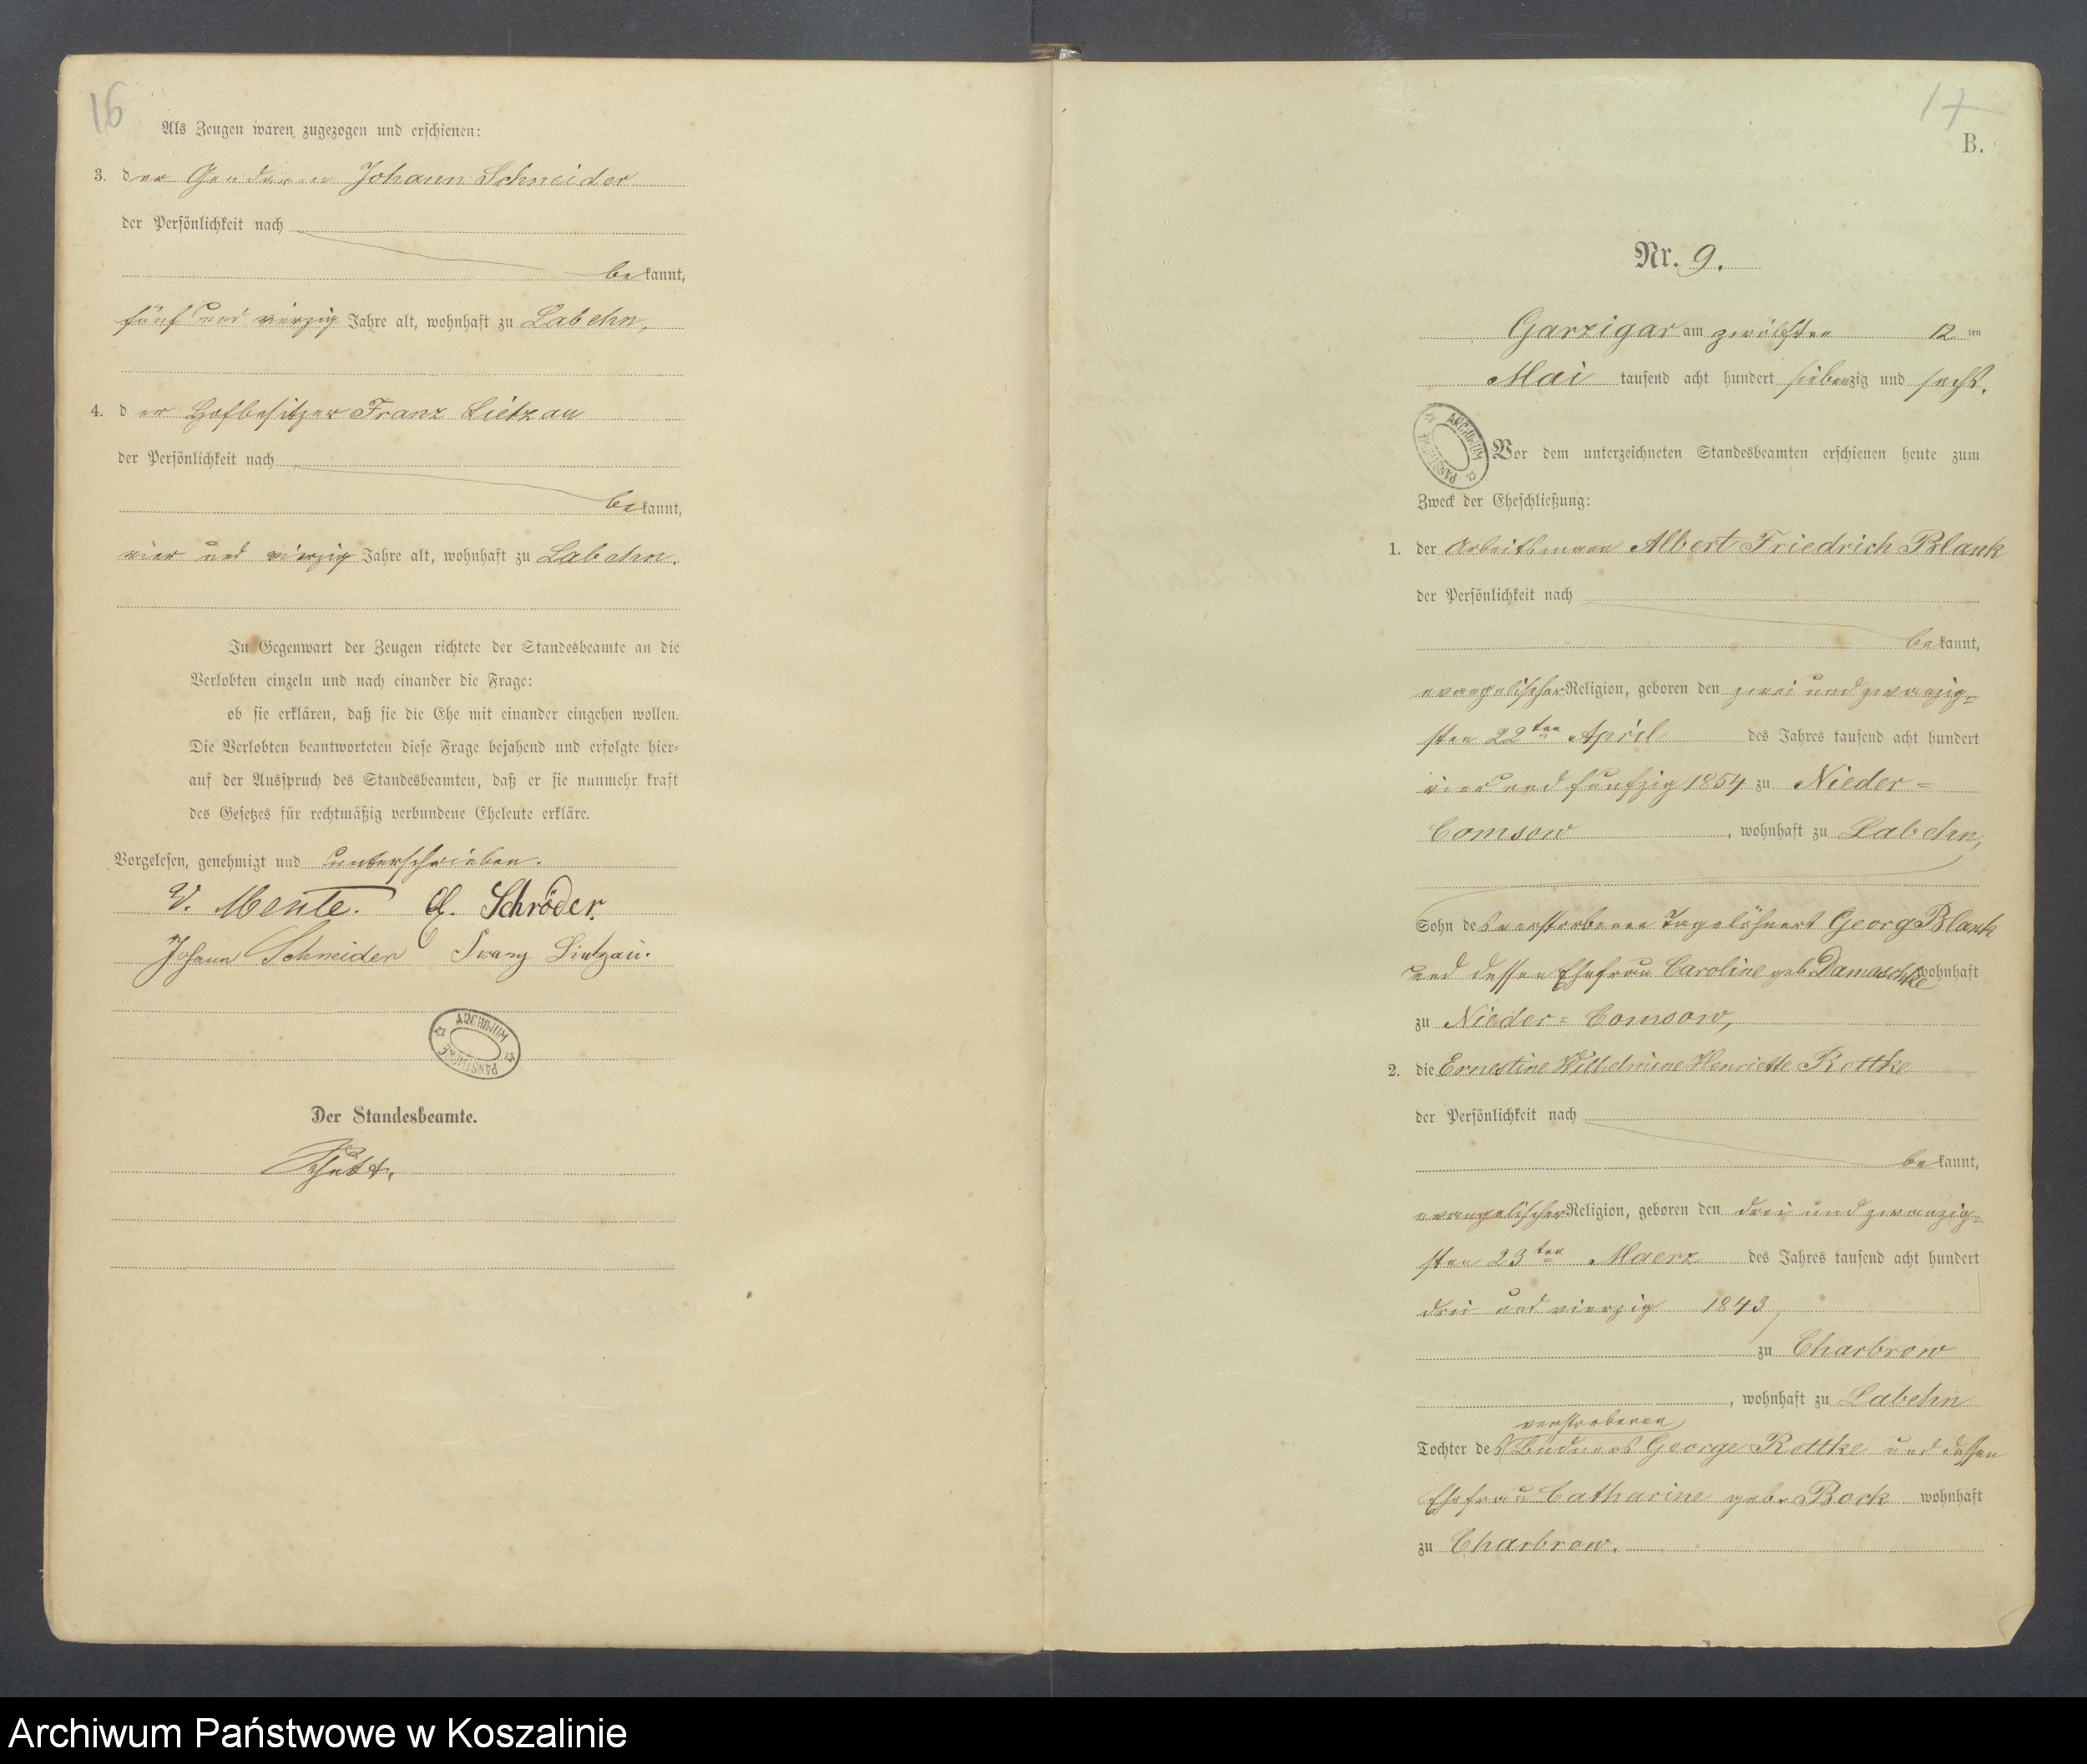 16
Als Zeugen waren zugezogen und erschienen:
3. der Gendarm Johann Schneider
der Persönlichkeit nach
bekannt,
fünf und vierzig Jahre alt, wohnhaft zu Labehn,
4. der Hofbesitzer Franz Lietzau
der Persönlichkeit nach
bekannt,
vier und vierzig Jahre alt, wohnhaft zu Labehn.
In Gegenwart der Zeugen richtete der Standesbeamte an die
Verlobten einzeln und nach einander die Frage:
ob sie erklären, daß sie die Ehe mit einander eingehen wollen.
Die Verlobten beantworteten diese Frage bejahend und erfolgte hier-
auf der Ausspruch des Standesbeamten, daß er sie nunmehr kraft
des Gesetzes für rechtmäßig verbundene Eheleute erkläre.
Vorgelesen, genehmigt und unterschrieben.
V. Mente. Schröder.
Johann Schneider Franz Lietzau.
ARCHIWUM PAŃSTWOWE
Der Standesbeamte.
17
B.
Nr. 9.
Garzigar am zwölften 12 ten
Mai tausend acht hundert siebenzig und sechs.
ARCHIWUM PAŃSTWOWE
Vor dem unterzeichneten Standesbeamten erschienen heute zum
Zweck der Eheschließung:
1. der Arbeitsmann Albert Friedrich Blank
der Persönlichkeit nach
bekannt,
evangelischer Religion, geboren den zwei und zwanzig=
sten 22ten April des Jahres tausend acht hundert
vier und fünfzig 1854 zu Nieder=
Comsow, wohnhaft zu Labehn,
Sohn des verstorbenen Tagelöhners Georg Blank
und dessen Ehefrau Caroline geb. Damaschke wohnhaft
zu Nieder=Comsow,
2. die Ernestine Wilhelmine Henriette Rottke
der Persönlichkeit nach
bekannt,
evangelischer Religion, geboren den drei und zwanzig=
sten 23ten Maerz des Jahres tausend acht hundert
drei und vierzig 1843,
zu Charbrow
, wohnhaft zu Labehn
verstorbenen
Tochter des Büdners George Rottke und dessen
Ehefrau Catharine geb. Bock wohnhaft
zu Charbrow.
Archiwum Państwowe w Koszalinie